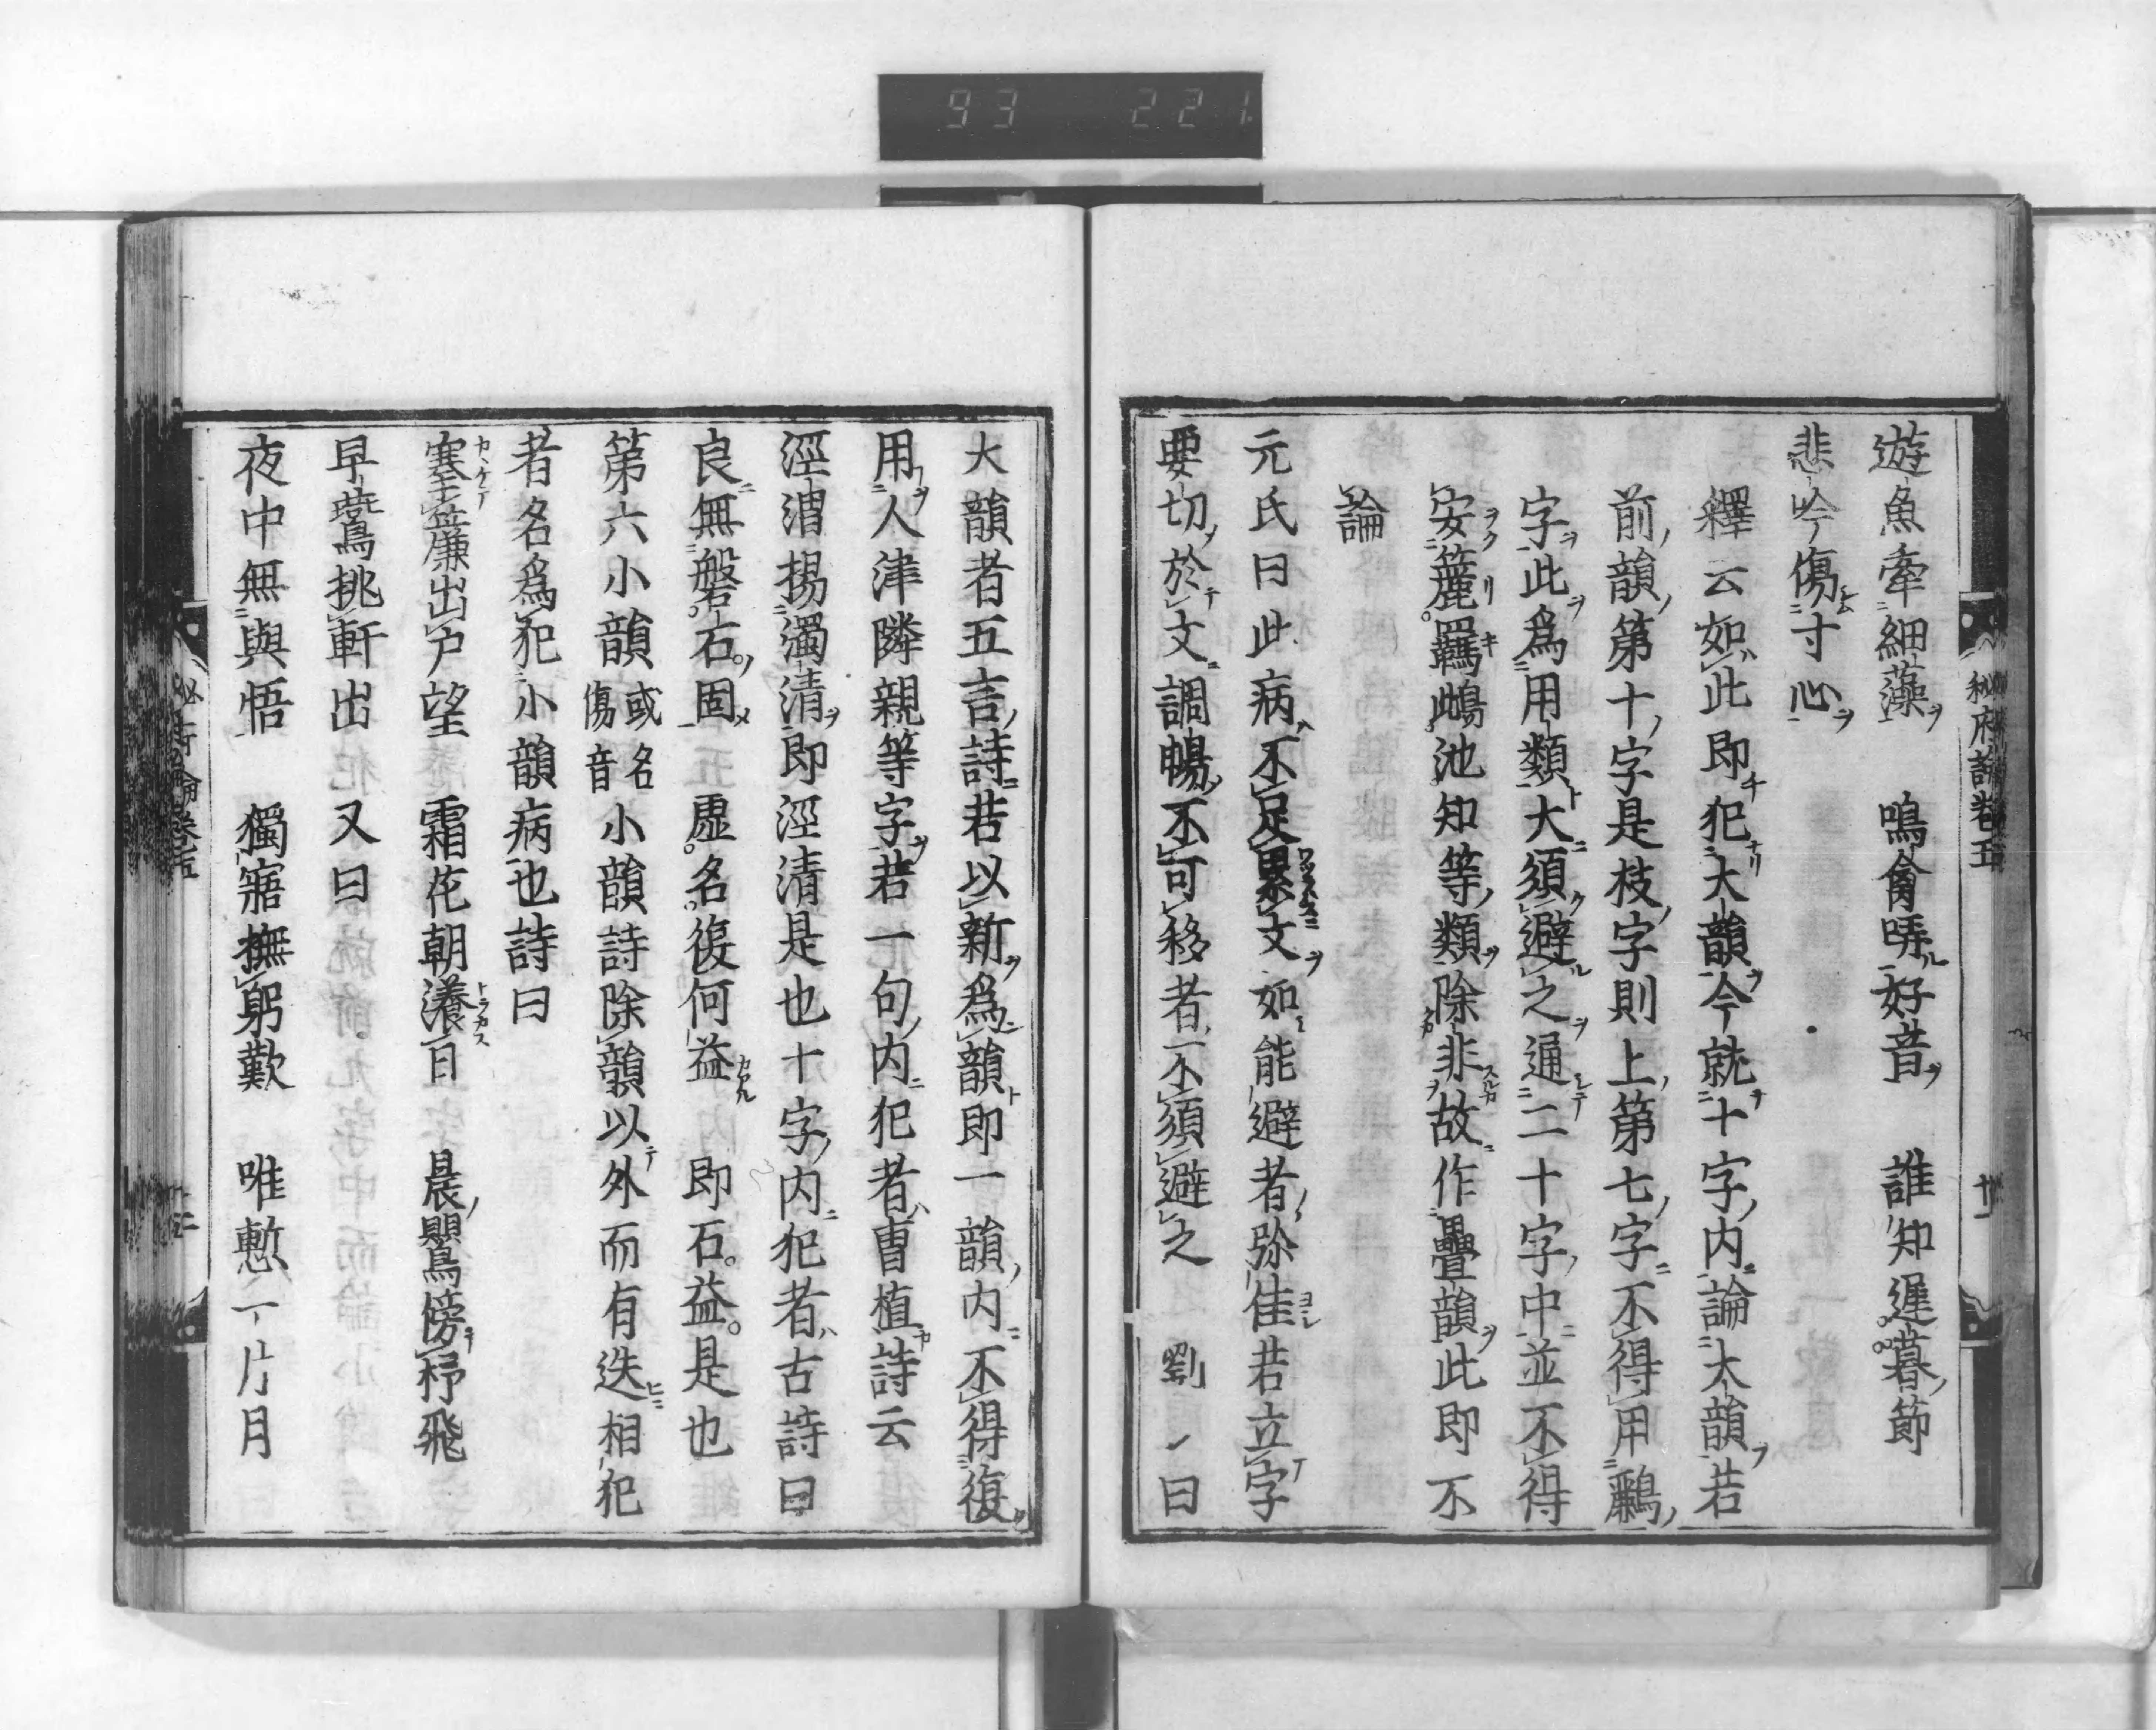 93 221
遊魚牽細藻 鳴禽哢好音 誰知遲暮節
悲吟傷寸心
釋云如此即犯大韻今就十字内論大韻若
前韻第十字是枝字則上第七字不得用鸝
字此爲用類大須避之通二十字中並不得
安簏羈鴟池知等類除非故作疊韻此即不
論
元氏曰此病不足累文如能避者弥佳若立字
要切於文調暢不可移者不須避之 劉丶曰
秘府論卷五
廿一
大韻者五言詩若以新爲韻即一韻内不得復
用人津隣親等字若一句内犯者曹植詩云
涇渭揚濁清即涇清是也十字内犯者古詩曰
良無磐石固 虚名復何益 即石益是也
第六小韻 或名傷音 小韻詩除韻以外而有迭相犯
者名爲犯小韻病也詩曰
塞簾出戸望 霜花朝瀁日 晨鸎傍杼飛
早鷰挑軒出 又曰
夜中無與悟 獨寤撫躬歎 唯慙一片月